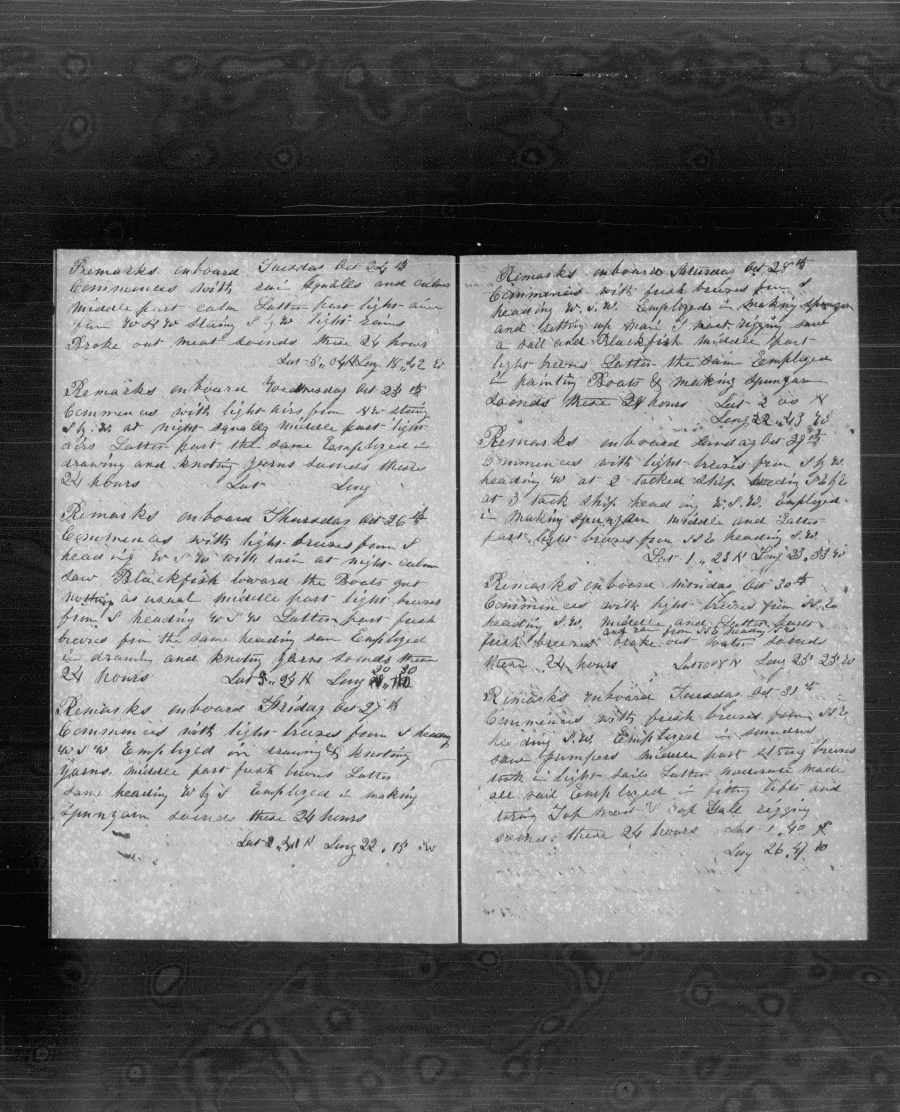 Remarks onboard Tuesday Oct 24 th
Commences with rain squalls and calms
middle part calm Latter part light airs
from W N W steering S by W light rains
Broke out meat sounds these 24 hours
Lat 5, 04 N Long 18, 42 W
Remarks onboard Wednesday Oct 25 th
Commences with light airs from NW sterng
S by W at night squally middle part light
airs Latter part the same Employed in
drawing and knoting yarns sounds these
24 hours Lat Long
Remarks onboard Thursday Oct 26 th
Commences with light breezes from S
heading W S W with rain at night calm
saw Blackfish loward the Boats got
nothing as usual middle part light breezes
from S heading W S W Latter part fresh
breezes from the same heading sam Employed
in drawing and knoting yarns sounds these
24 hours Lat 3,, 24 N Long 20 20
Remarks onboard Friday Oct 27 th
Commences with light breezes from S heading
W S W Employed in drawing & knoting
yarns. middle part fresh breezes Latter
same heading W by S Employed in making
spunyarn sounds these 24 hours
Lat 2,, N Long 22, 15 W
Remarks onboard Saturday Oct 28 th
Commences with fresh breezes from S
heading W. S. W. Employed in making spunyarn
and setting up main T mast rigging saw
a sail and Blackfish middle part
light breezes Latter the sam Employed
in painting Boats & making spunyarn
sounds these 24 hours Lat 2 00 N
Long 22,, 43 W
Remarks onboard Sunday Oct 29 th
Commences with light breezes from S by W.
heading W at 2 tacked ship heading
at 3 tack ship head in W. S. W. Employed
in making spunyarn middle and Latter
part light breezes from heading S. W.
Lat 1,, 23 N Long 23, 33 W
Remarks onboard monday Oct 30 th
Commences with light breezes from
heading S. W. middle and Latter parts
and rain from heading
fresh breezes broke out water sounds
these 24 hours Lat 00 N Long 25 25 W
Remarks onboard Tuesday Oct 31 st
Commences with fresh breezes from
heading S. W. Employed in sundries
saw Jumpers middle part strong breezes
took in light sails Latter moderate made
all sail Employed in fitting and
taring Top mast & Top Gall rigging
sounds these 24 hours Lat 1, 40
Long 26. 47